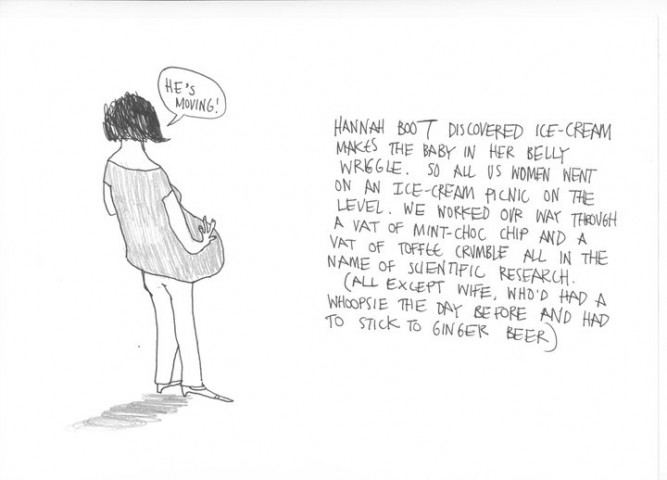 HE'S
MOVING!
HANNAH BOOT DISCOVERED ICE-CREAM
MAKES THE BABY IN HER BELLY
WRIGGLE. SO ALL US WOMEN WENT
ON AN ICE-CREAM PICNIC ON THE
LEVEL. WE WORKED OUR WAY THROUGH
A VAT OF MINT-CHOC CHIP AND A
VAT OF TOFFEE CRUMBLE ALL IN THE
NAME OF SCIENTIFIC RESEARCH.
(ALL EXCEPT WIFE, WHO'D HAD A
WHOOPSIE THE DAY BEFORE AND HAD
TO STICK TO GINGER BEER)